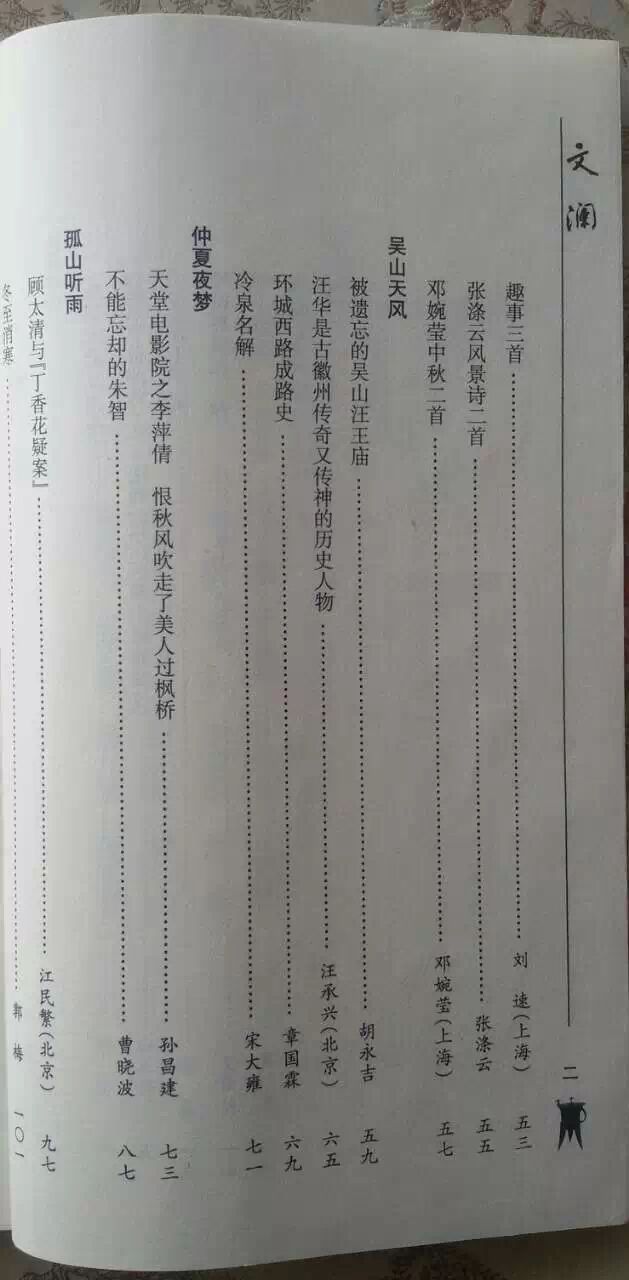 文澜
趣事三首 刘速(上海) 五三
张涤云风景诗二首 张涤云 五五
邓婉莹中秋二首 邓婉莹(上海) 五七
吴山天风
被遗忘的吴山汪王庙 胡永吉 五九
汪华是古徽州传奇又传神的历史人物 汪承兴(北京) 六五
环城西路成路史 章国霖 六九
冷泉名解 宋大雍 七一
仲夏夜梦
天堂电影院之李萍倩 恨秋风吹走了美人过枫桥 孙昌建 七三
不能忘却的朱智 曹晓波 八七
孤山听雨
顾太清与『丁香花疑案』 江民繁(北京) 九七
冬至消寒 郭梅 一〇一
二